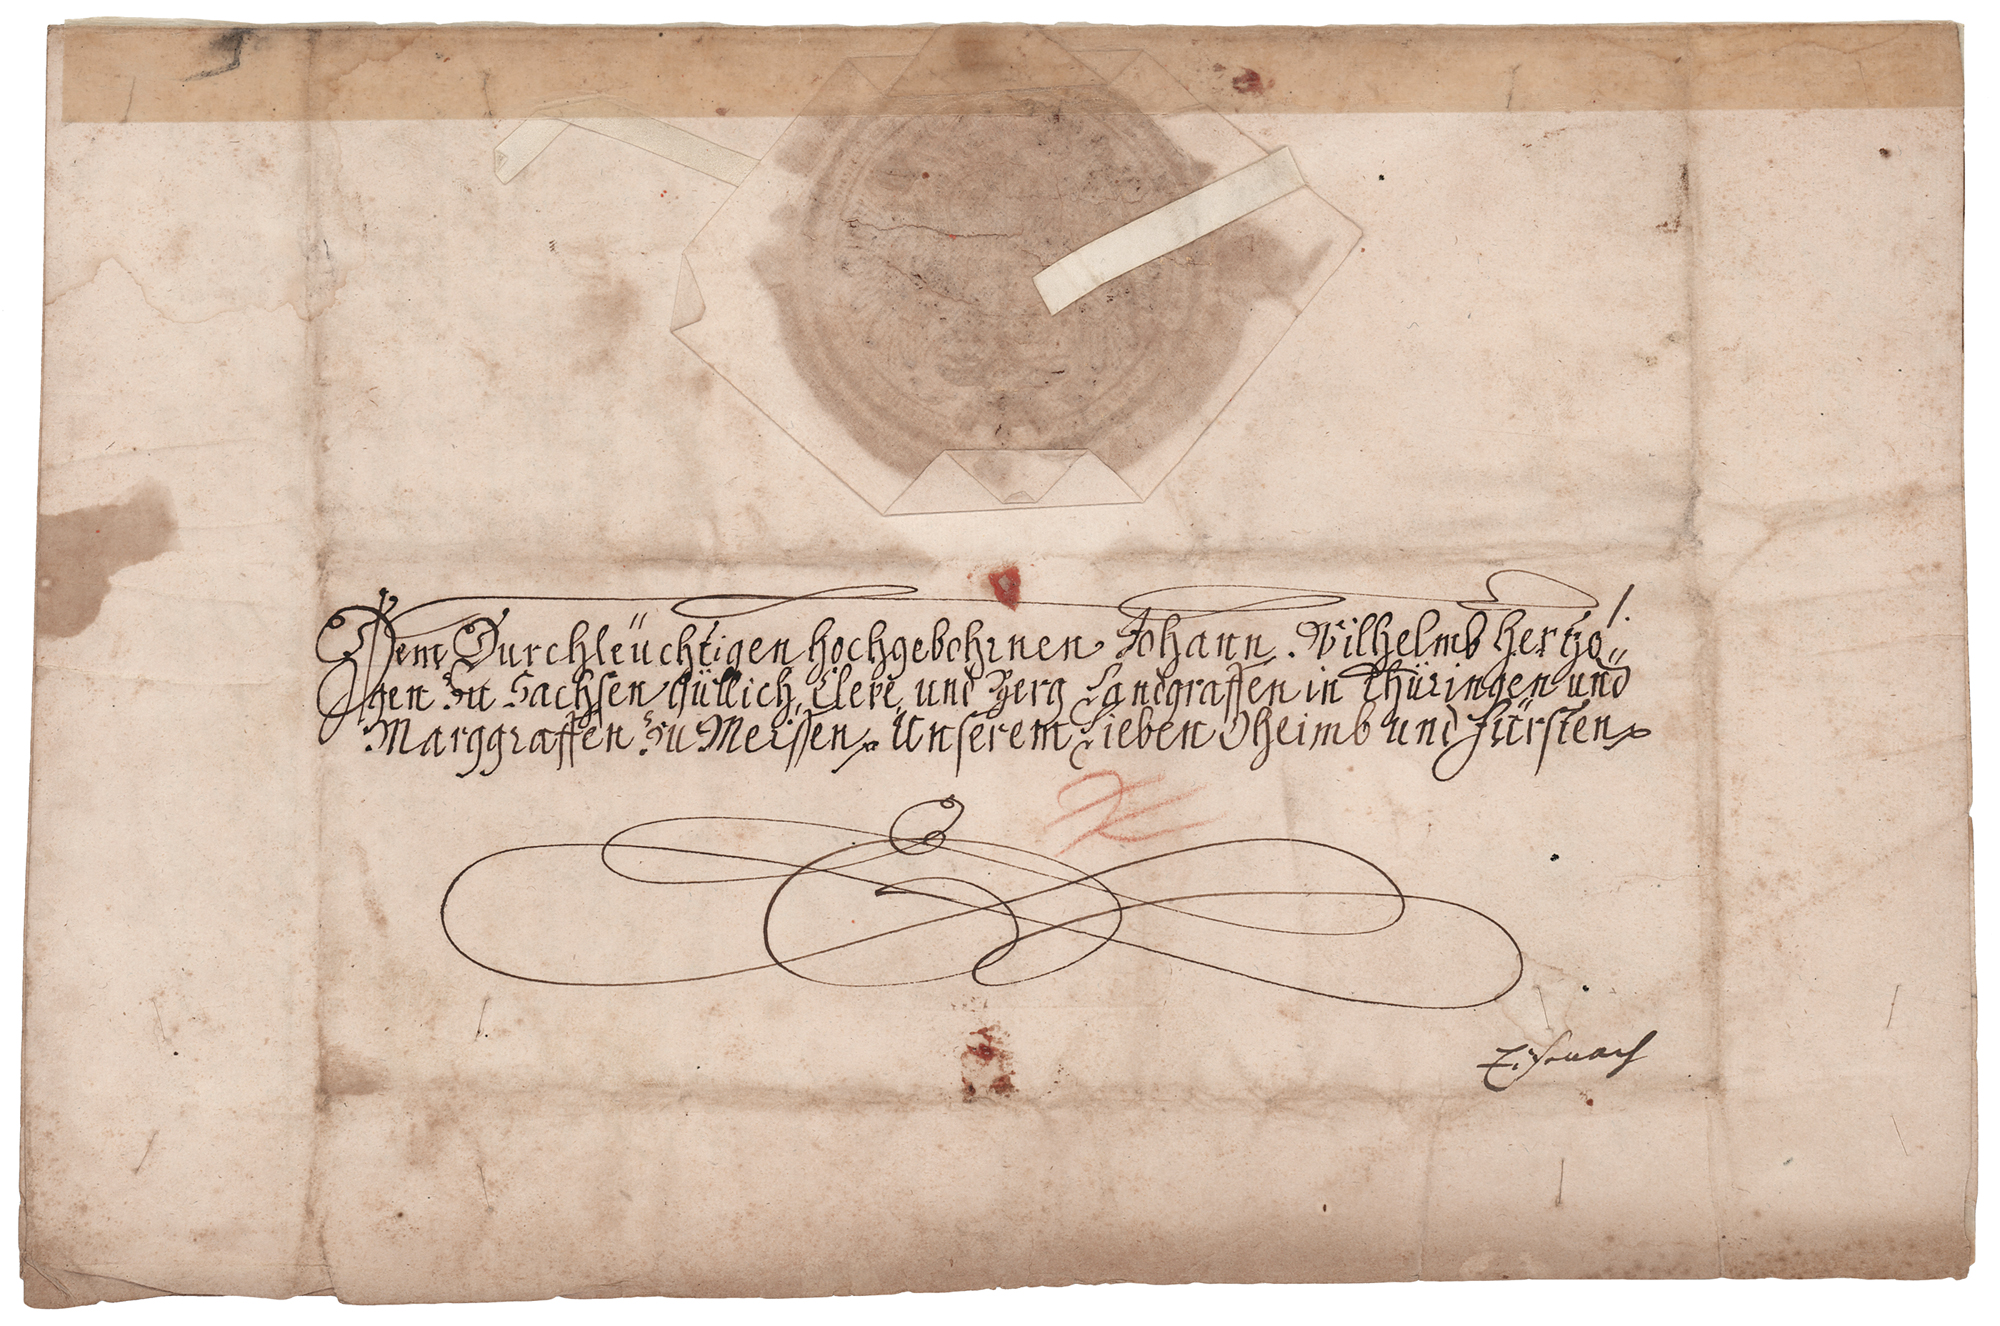 Dem Durchleüchtigen Hochgebohrnen Johann Wilhelmb Hertzo„
gen Zu Sachsen Güllich, Cleve, und Berg Landgraffen in Thüringen und
Marggraffen Zu Meissen. Unserem Lieben Oheimb und Fürsten
Eisenach